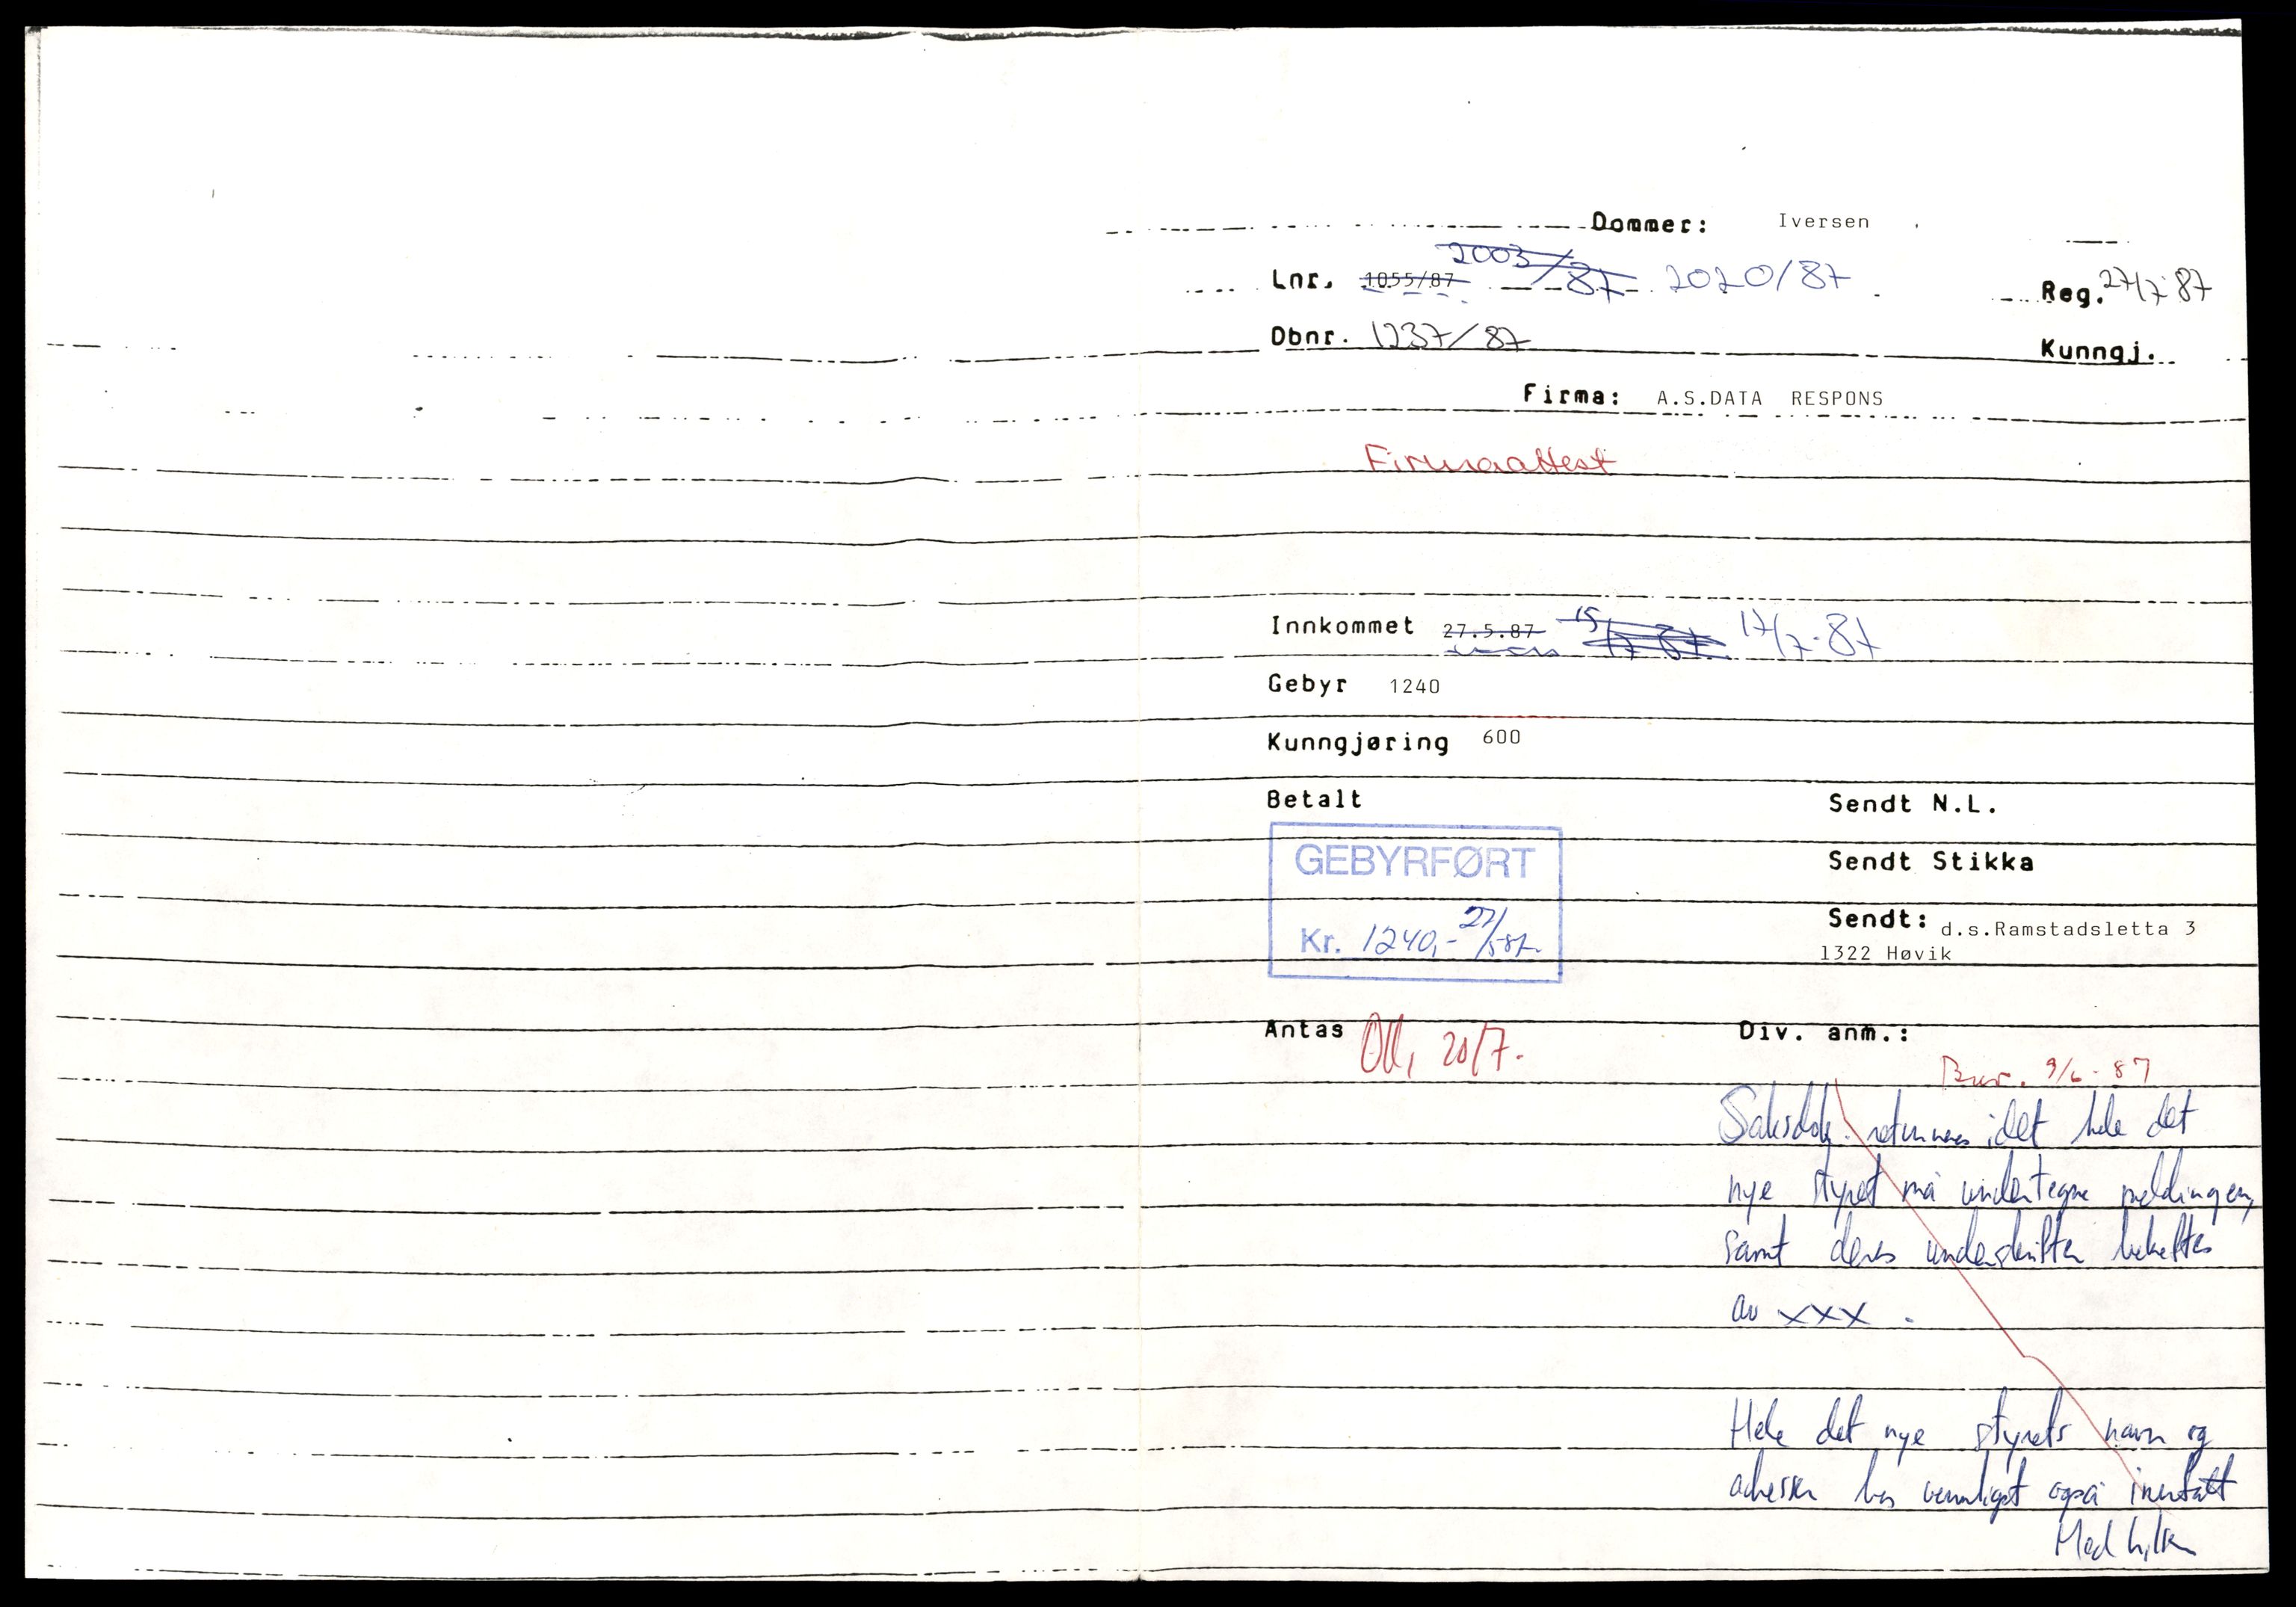 Dommer: Iversen
Lnr. 1055/87 2003/87 2020/87 Reg. 27/7 87
Dbnr. 1237/87 Kunngj.
Firma: A.S.DATA RESPONS
Firmaattest
Innkommet 27.5.87 15/7 87 17/7-87
Gebyr 1240
Kunngjøring 600
Betalt Sendt N.L.
GEBYRFØRT
Sendt Stikka
Sendt: d.s.Ramstadsletta 3
Kr. 1240,- 27/5-87.
1322 Høvik
Antas 20/7. Div. anm.:
9/6-87
Saksdok. returneres idet hele det
nye styret må undertegne meldingen,
samt deres underskrifter bekreftes
av xxx.
Hele det nye styrets navn og
adresser bes vennligst også inntatt
Med hilsen